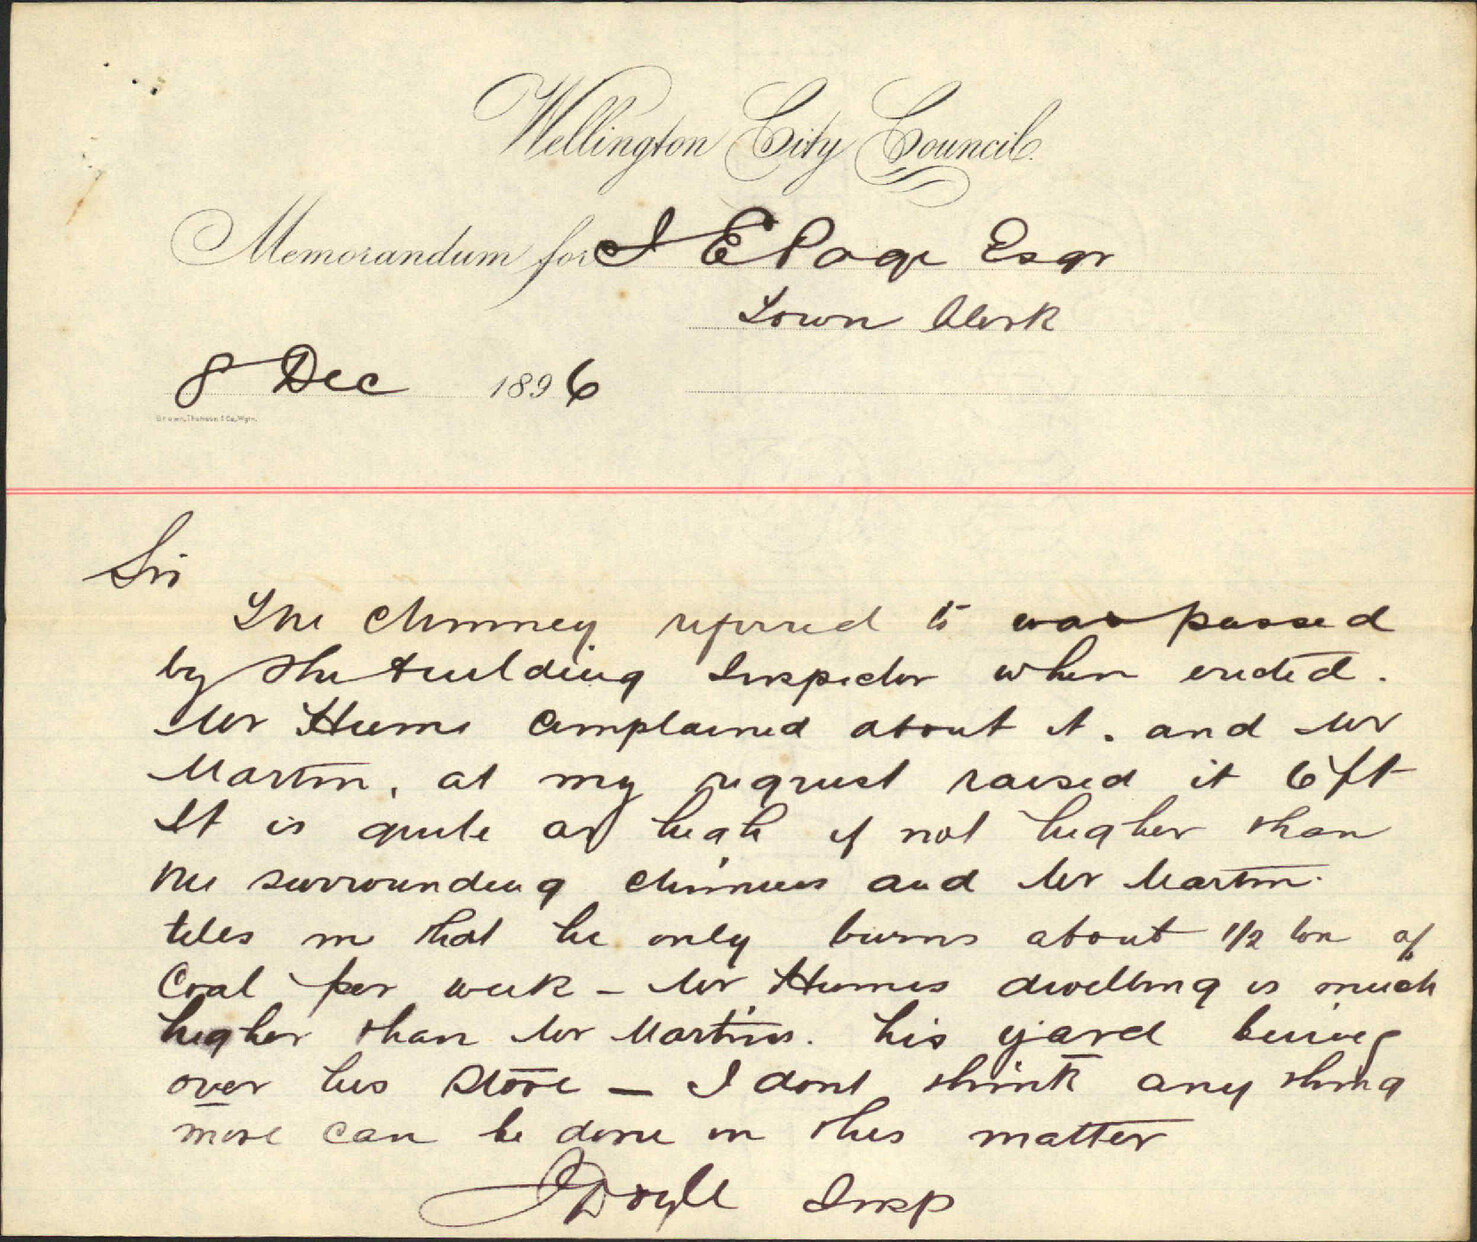 Wellington City Council.
Memorandum for J E Page Esqr
Town Clerk
8 Dec 1896
Brown, Thomson & Co, Wgtn.
Sir
The chimney referred to was passed
by the building Inspector when erected.
Mr Hume complained about it. and Mr
Martin, at my request raised it 6 ft
It is quite as high if not higher than
the surrounding chimneys and Mr Martin
tells me that he only burns about 1/2 ton of
Coal per week – Mr Humes dwelling is much
higher than Mr Martins. his yard being
over his store – I dont think any thing
more can be done in this matter
J Doyle Insp